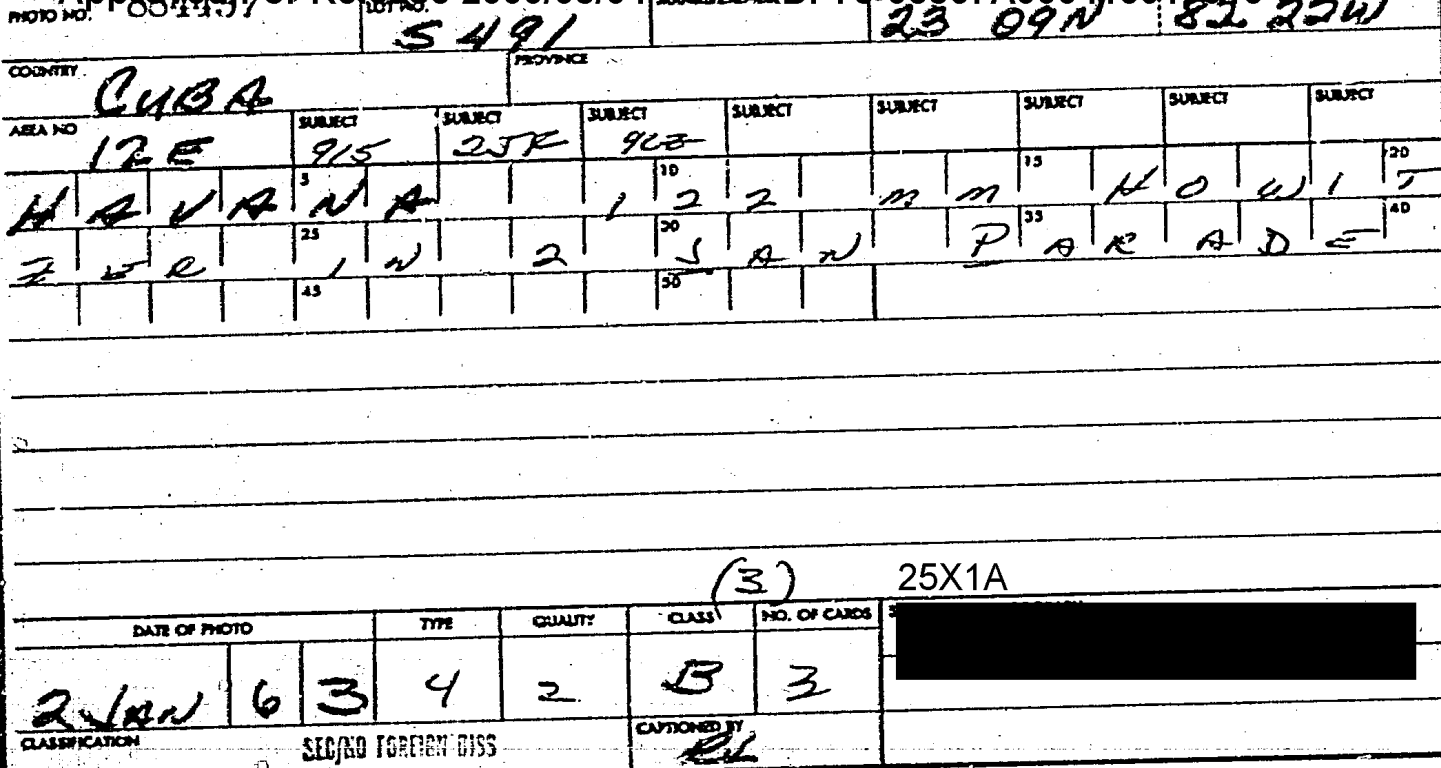 PHOTO NO. LOT NO.
5491 23 09N 82 22W
COUNTRY CUBA PROVINCE
AREA NO 12E SUBJECT 915 SUBJECT 25K SUBJECT SUBJECT SUBJECT SUBJECT SUBJECT SUBJECT
5 10 15 20
HAVANA 122 MM HOWIT
25 30 35 40
ZER IN 2 JAN PARADE
45 50
(3) 25X1A
DATE OF PHOTO TYPE QUALITY CLASS NO. OF CARDS
2 JAN 6 3 4 2 B 3
CLASSIFICATION SEC/NO FOREIGN DISS CAPTIONED BY